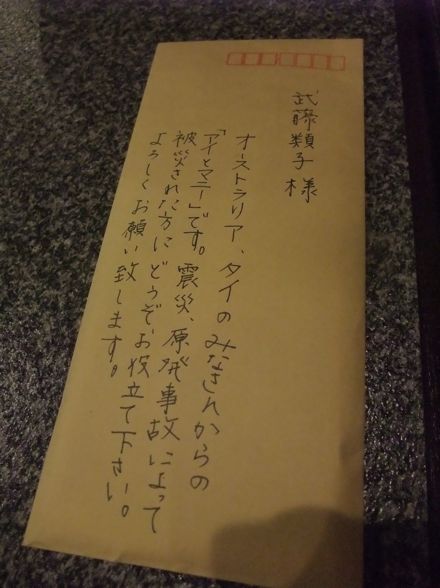 武藤類子様
オーストラリア、タイのみなさんからの
「アイとマニー」です。震災、原発事故によって
被災された方にどうぞお役立て下さい。
よろしくお願い致します。